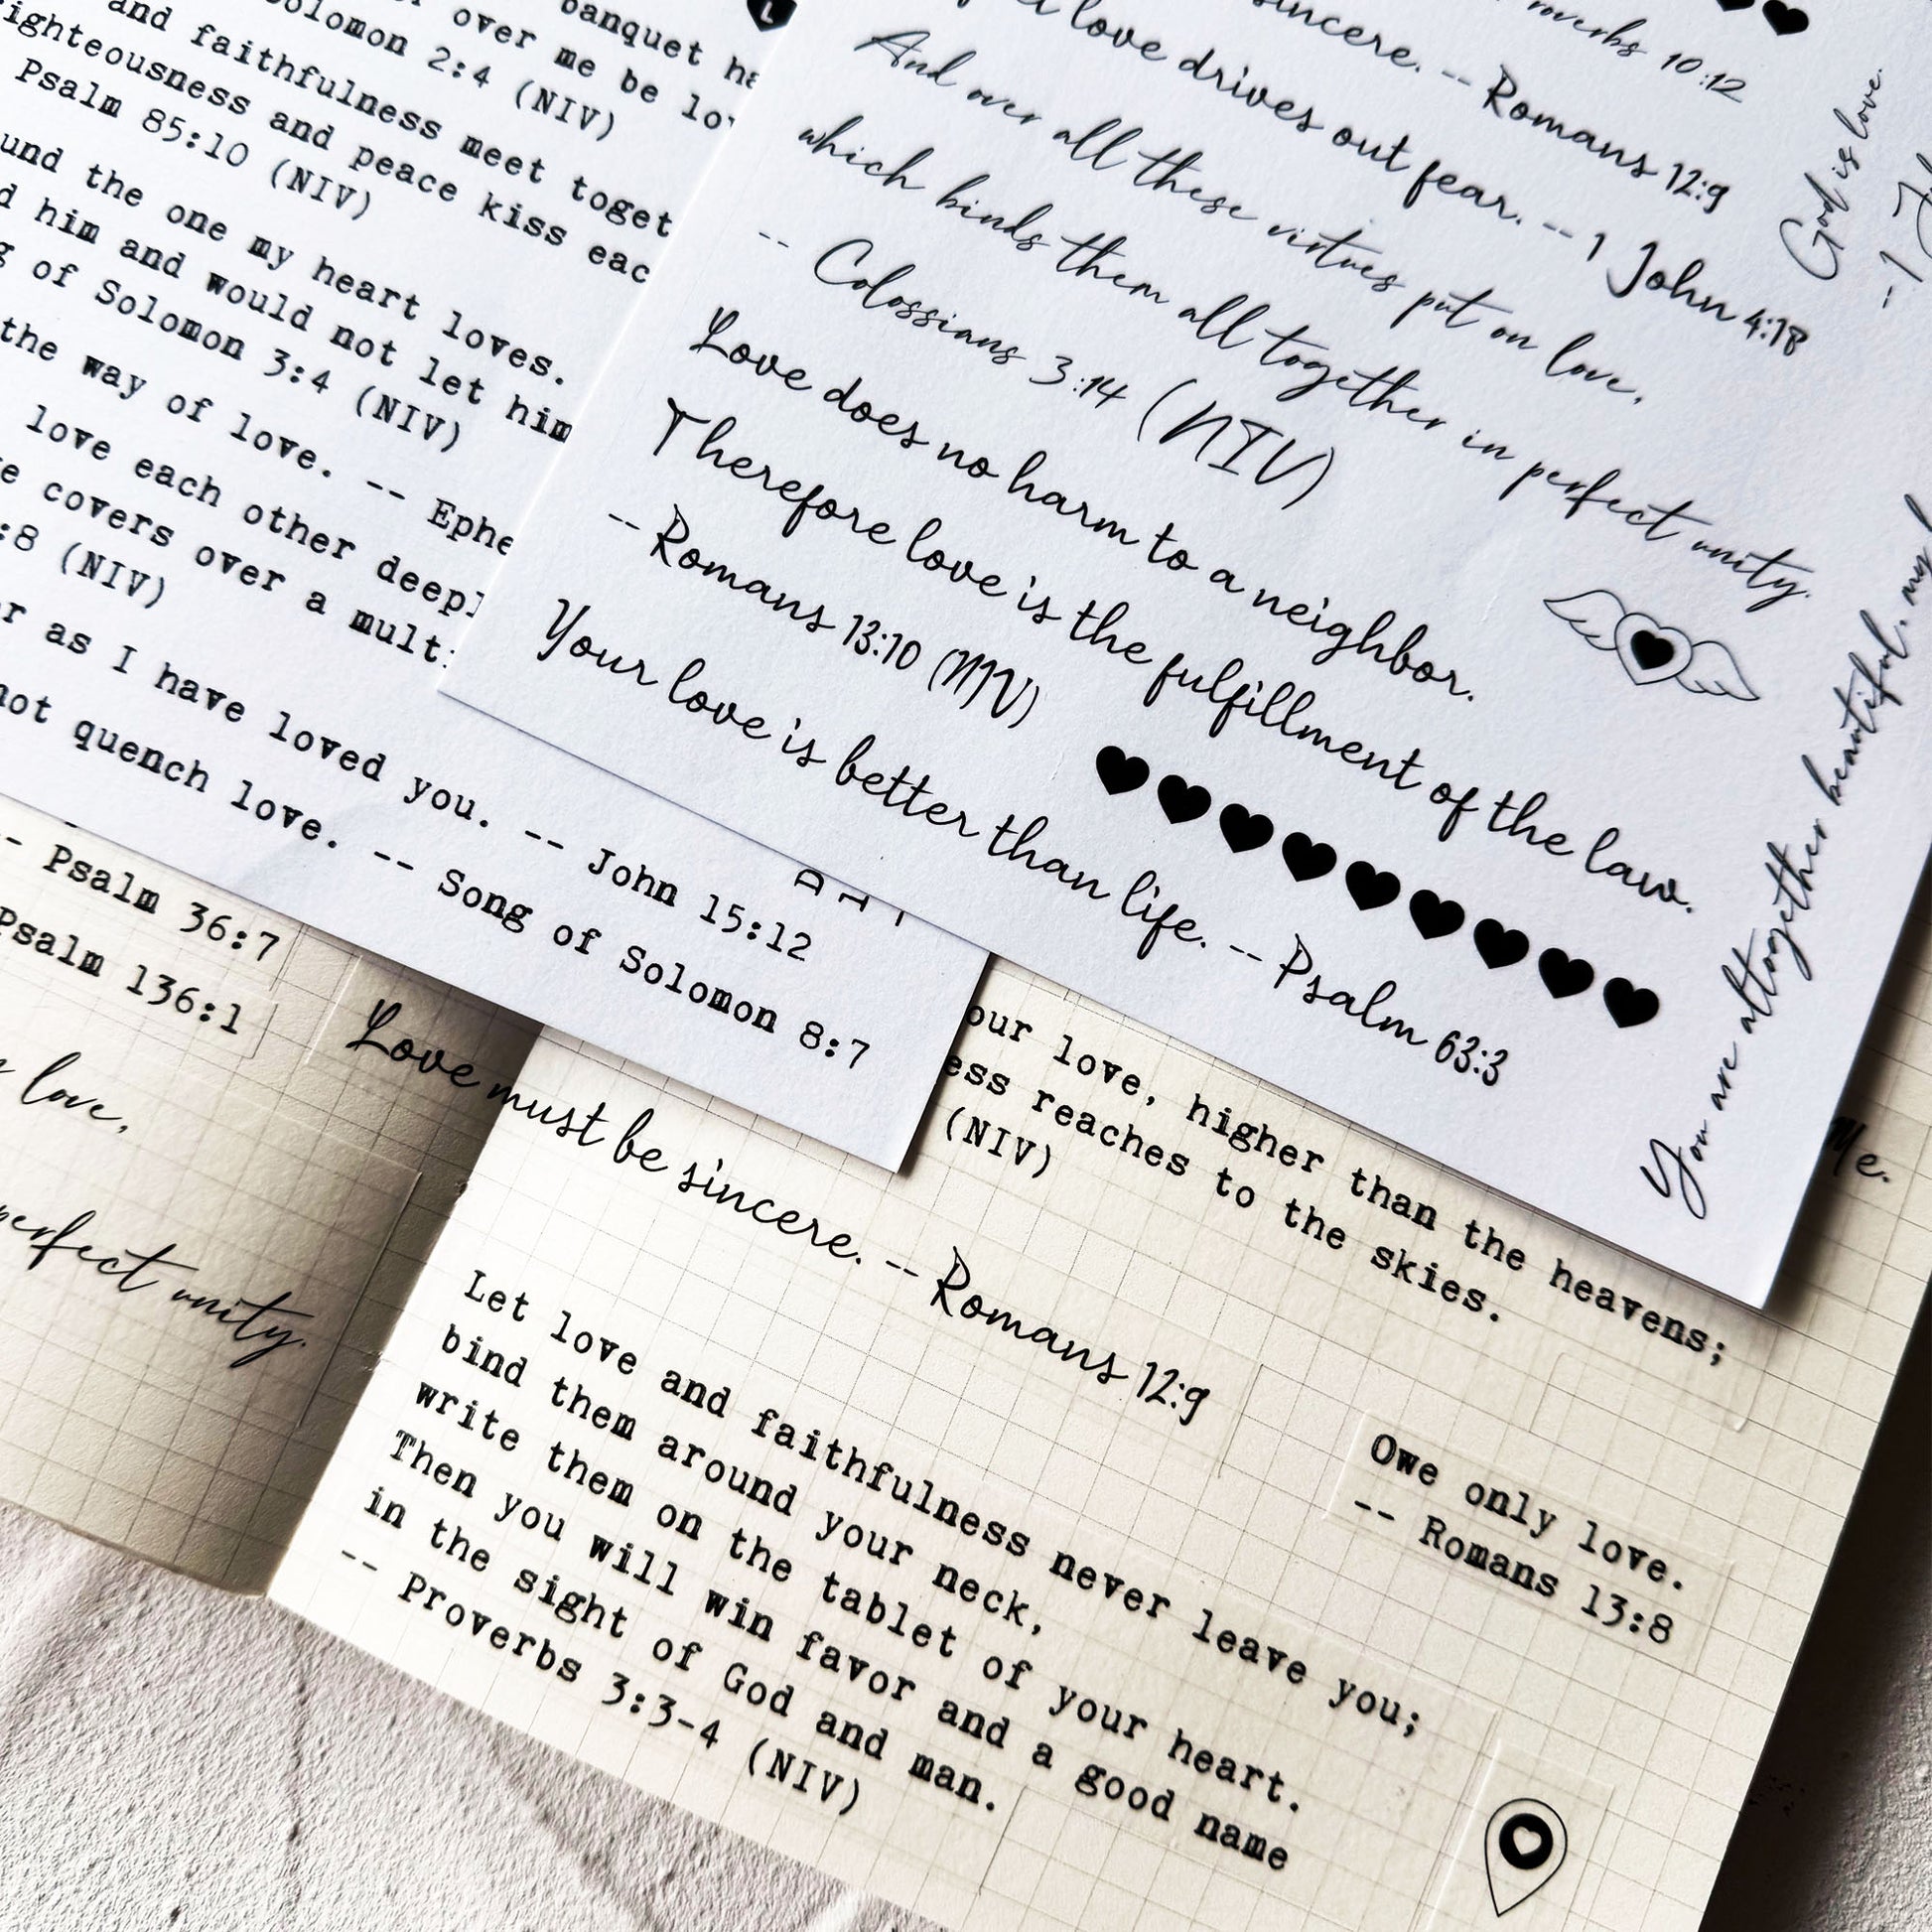 banquet
over me be
Solomon 2:4 (NIV)
and faithfulness meet
righteousness and peace kiss
Psalm 85:10 (NIV)
the one my heart loves.
him and would not let him
of Solomon 3:4 (NIV)
the way of love. --
love each other
covers over a
:8 (NIV)
as I have loved you. -- John 15:12
not quench love. -- Song of Solomon 8:7
L
10:12
sincere. -- Romans 12:9
love drives out fear. -- 1 John 4:18
And over all these virtues put on love,
which binds them all together in perfect unity.
-- Colossians 3:14 (NIV)
Love does no harm to a neighbor.
Therefore love is the fulfillment of the law.
-- Romans 13:10 (NIV)
Your love is better than life. -- Psalm 63:3
God is love.
-- 1
You are altogether beautiful, my
-- Psalm 36:7
Psalm 136:1
love,
perfect unity.
Love must be sincere. -- Romans 12:9
love, higher than the heavens;
reaches to the skies.
(NIV)
Me.
Let love and faithfulness never leave you;
bind them around your neck,
write them on the tablet of your heart.
Then you will win favor and a good name
in the sight of God and man.
-- Proverbs 3:3-4 (NIV)
Owe only love.
-- Romans 13:8